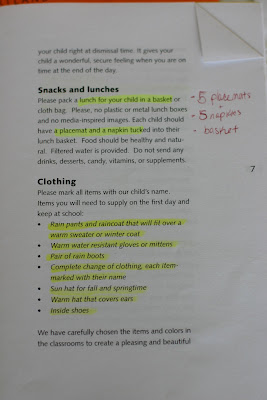 your child right at dismissal time. It gives your
child a wonderful, secure feeling when you are on
time at the end of the day.
Snacks and lunches
Please pack a lunch for your child in a basket or
cloth bag. Please, no plastic or metal lunch boxes
and no media-inspired images. Each child should
have a placemat and a napkin tucked into their
lunch basket. Food should be healthy and natu-
ral. Filtered water is provided. Do not send any
drinks, desserts, candy, vitamins, or supplements.
- 5 placemats
- 5 napkins
- basket
7
Clothing
Please mark all items with our child's name.
Items you will need to supply on the first day and
keep at school:
• Rain pants and raincoat that will fit over a
warm sweater or winter coat
• Warm water resistant gloves or mittens
• Pair of rain boots
• Complete change of clothing, each item
marked with their name
• Sun hat for fall and springtime
• Warm hat that covers ears
• Inside shoes
We have carefully chosen the items and colors in
the classrooms to create a pleasing and beautiful